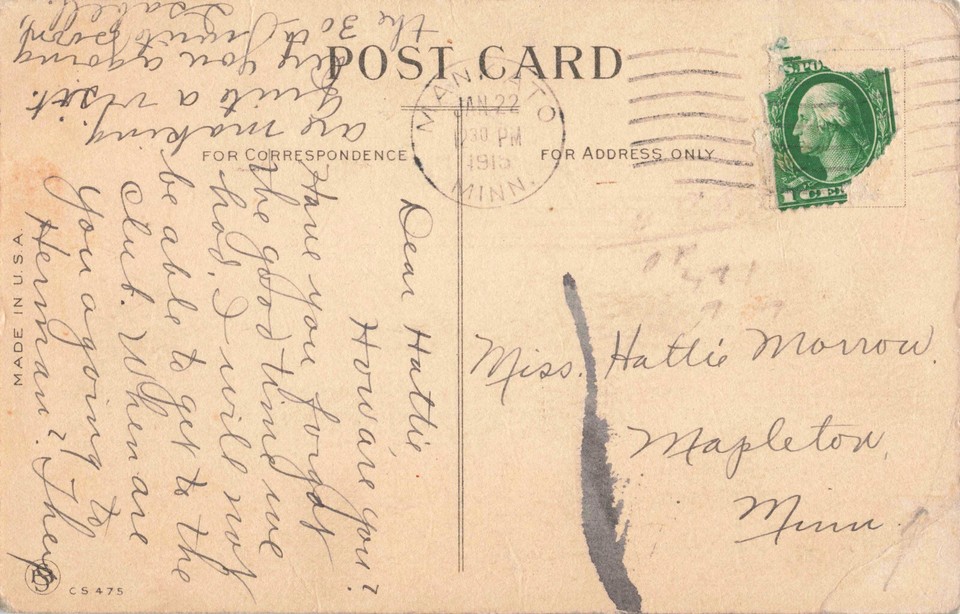 POST CARD
FOR CORRESPONDENCE
FOR ADDRESS ONLY
MANKATO
JAN 22
1230 PM
1915
MINN.
Dear Hattie,
How are you?
Have you forgot
the good time we
had. I will not
be able to get to the
club. When are
you a going to
Herman? They
are making
quite a visit.
you agoing
the 30
Isabell.
Miss. Hattie Morrow.
Mapleton,
Minn.
MADE IN U.S.A.
CS 475